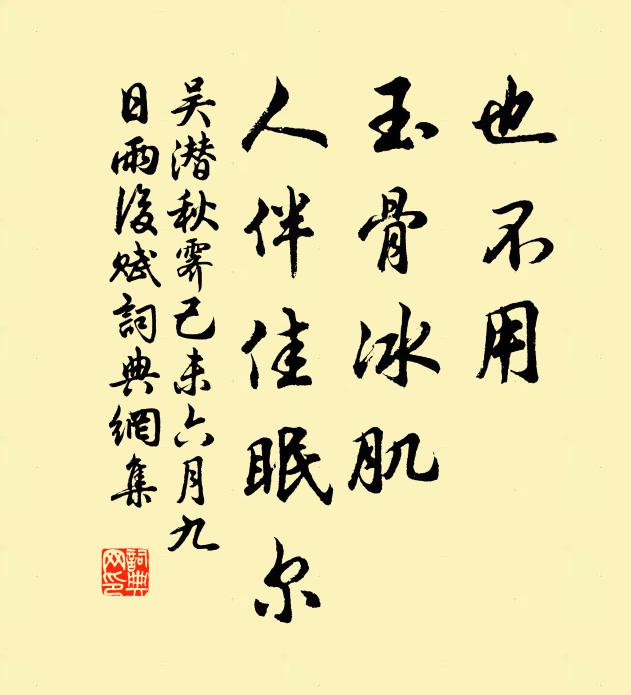 也不用
玉骨冰肌
人伴佳眠尔
吴潜秋霁己未六月九
日雨後赋詞典網集
詞典
网印